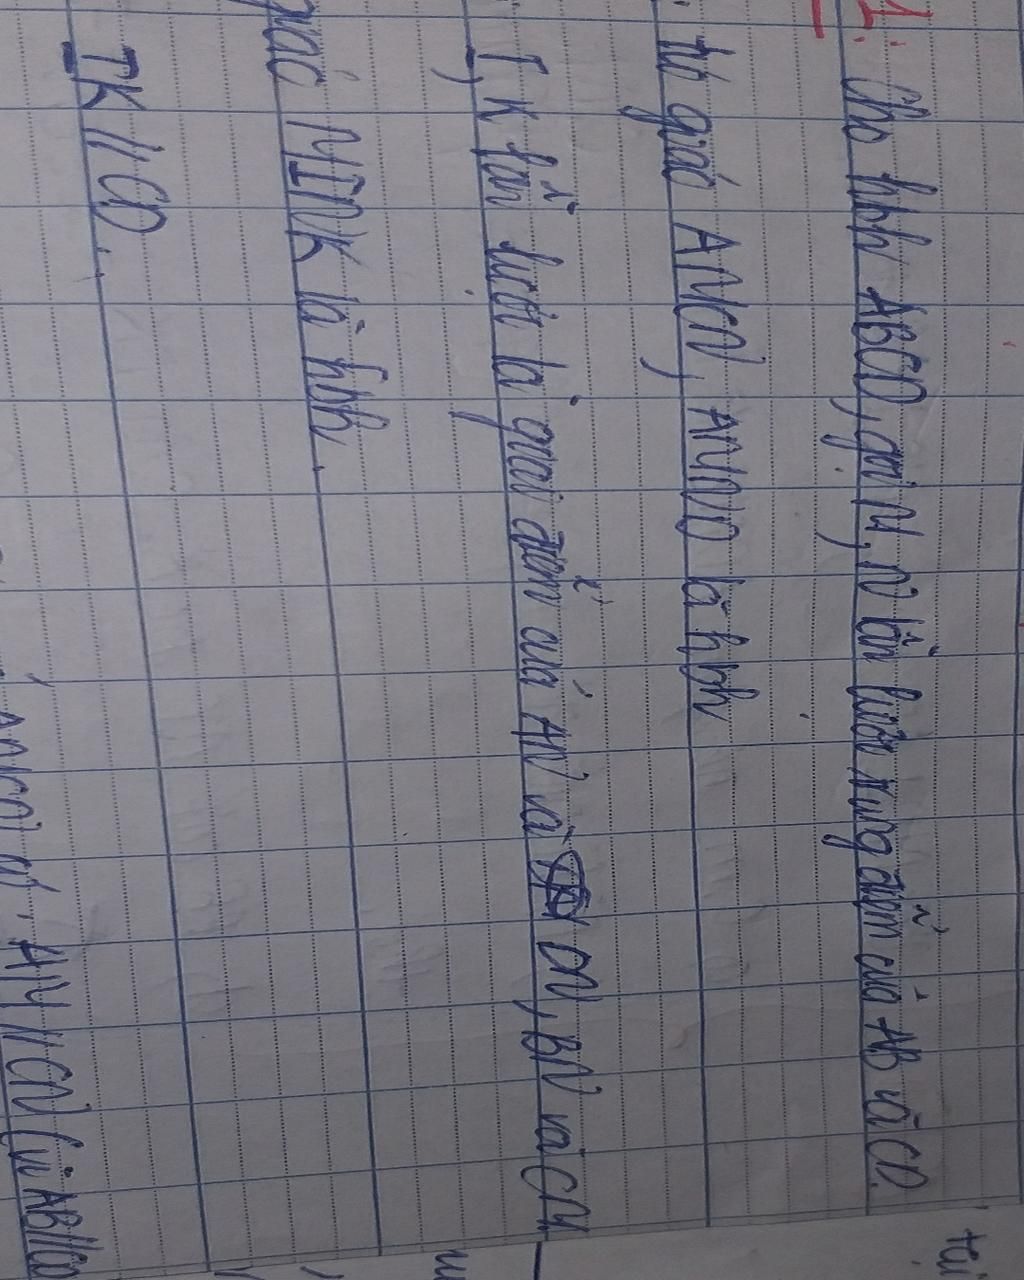 1: Cho hbh ABCD, gọi M, N lần lượt trung điểm của AB và CD.
tứ giác AMCN, AMND là hbh
I, K lần lượt là giao điểm của AN và DN, BN và CM
giác MINK là hbh.
IK // CD.
AMCN có: AM // CN (vì AB//CD